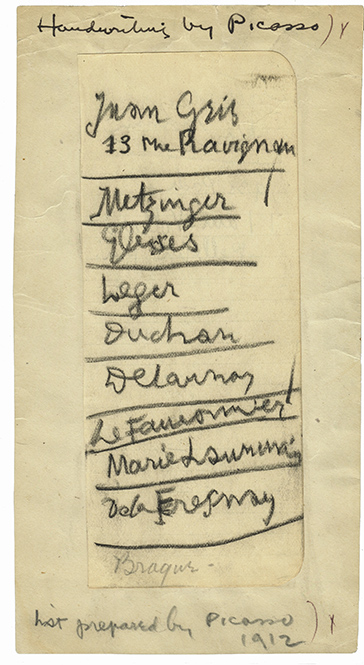 Handwriting by Picasso) x
Juan Gris
13 rue Ravignan
Metzinger
Gleses
Leger
Duchan
Delaunay
Le Fauconnier
Marie Laurencin
De la Fresnay
Braque -
List prepared by Picasso) x
1912